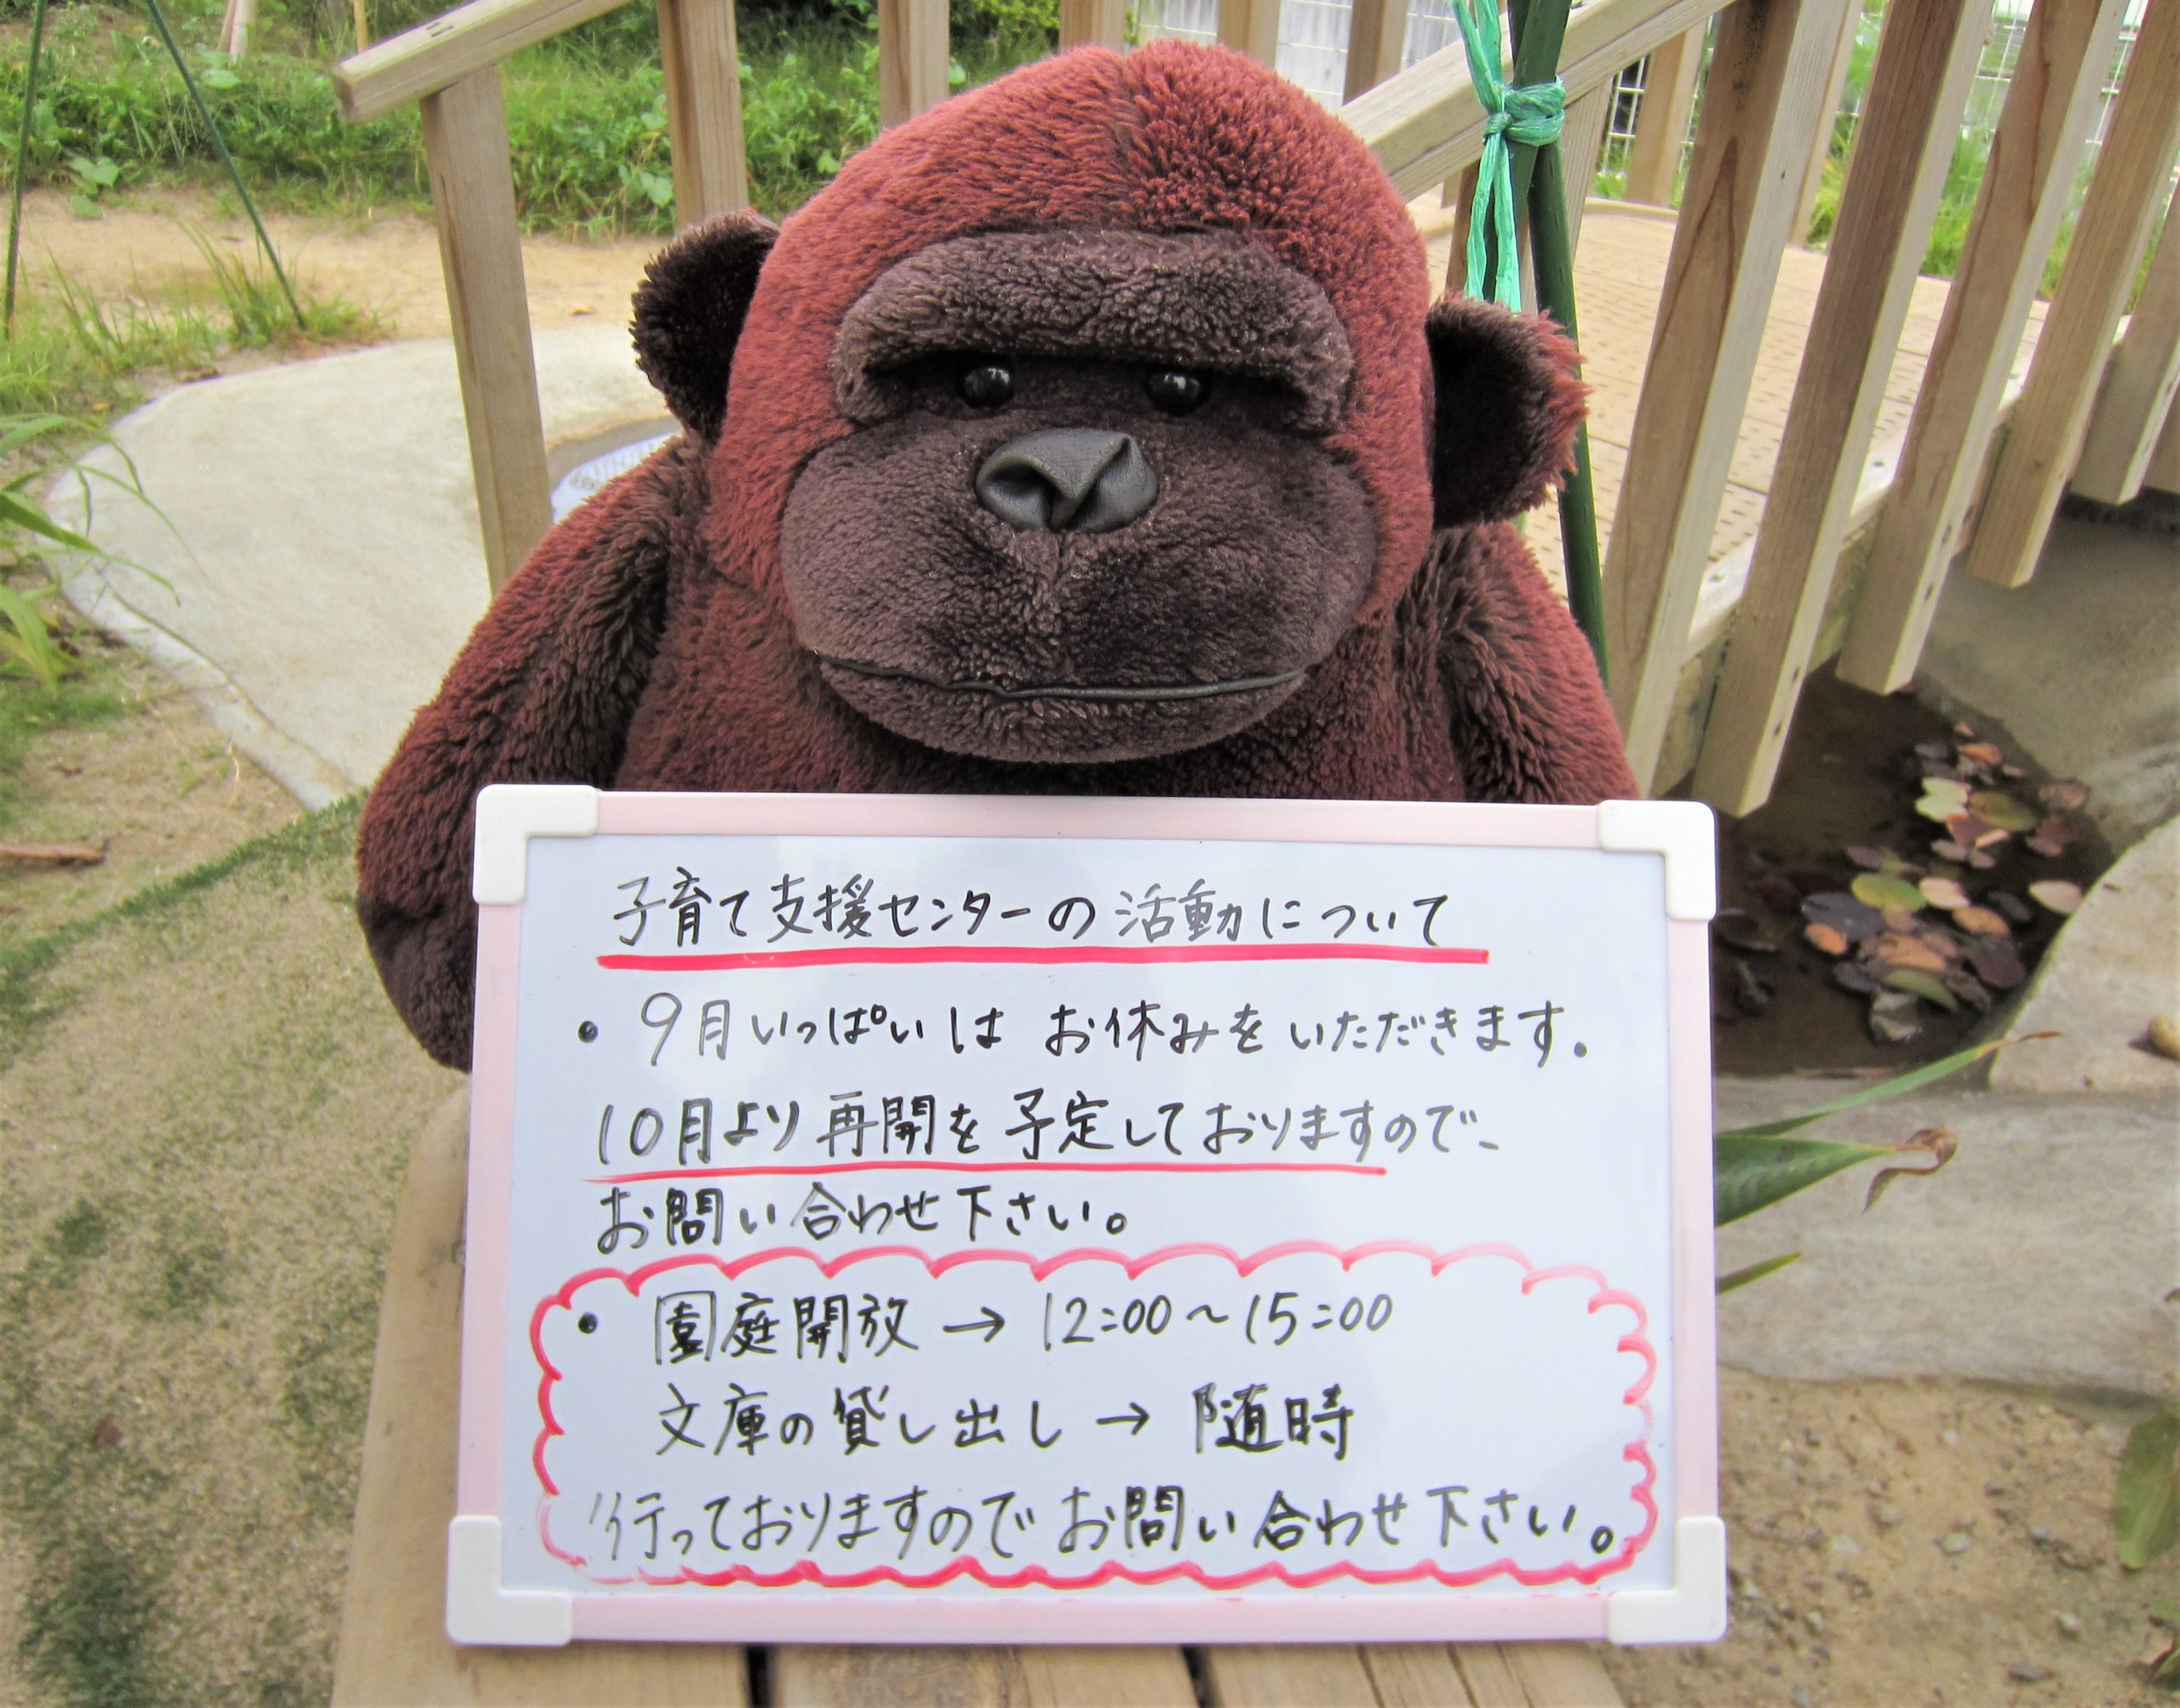 子育て支援センターの活動について
・9月いっぱいは お休みをいただきます。
10月より再開を予定しておりますので、
お問い合わせ下さい。
・園庭開放→12:00～15:00
文庫の貸し出し→随時
行っておりますのでお問い合わせ下さい。